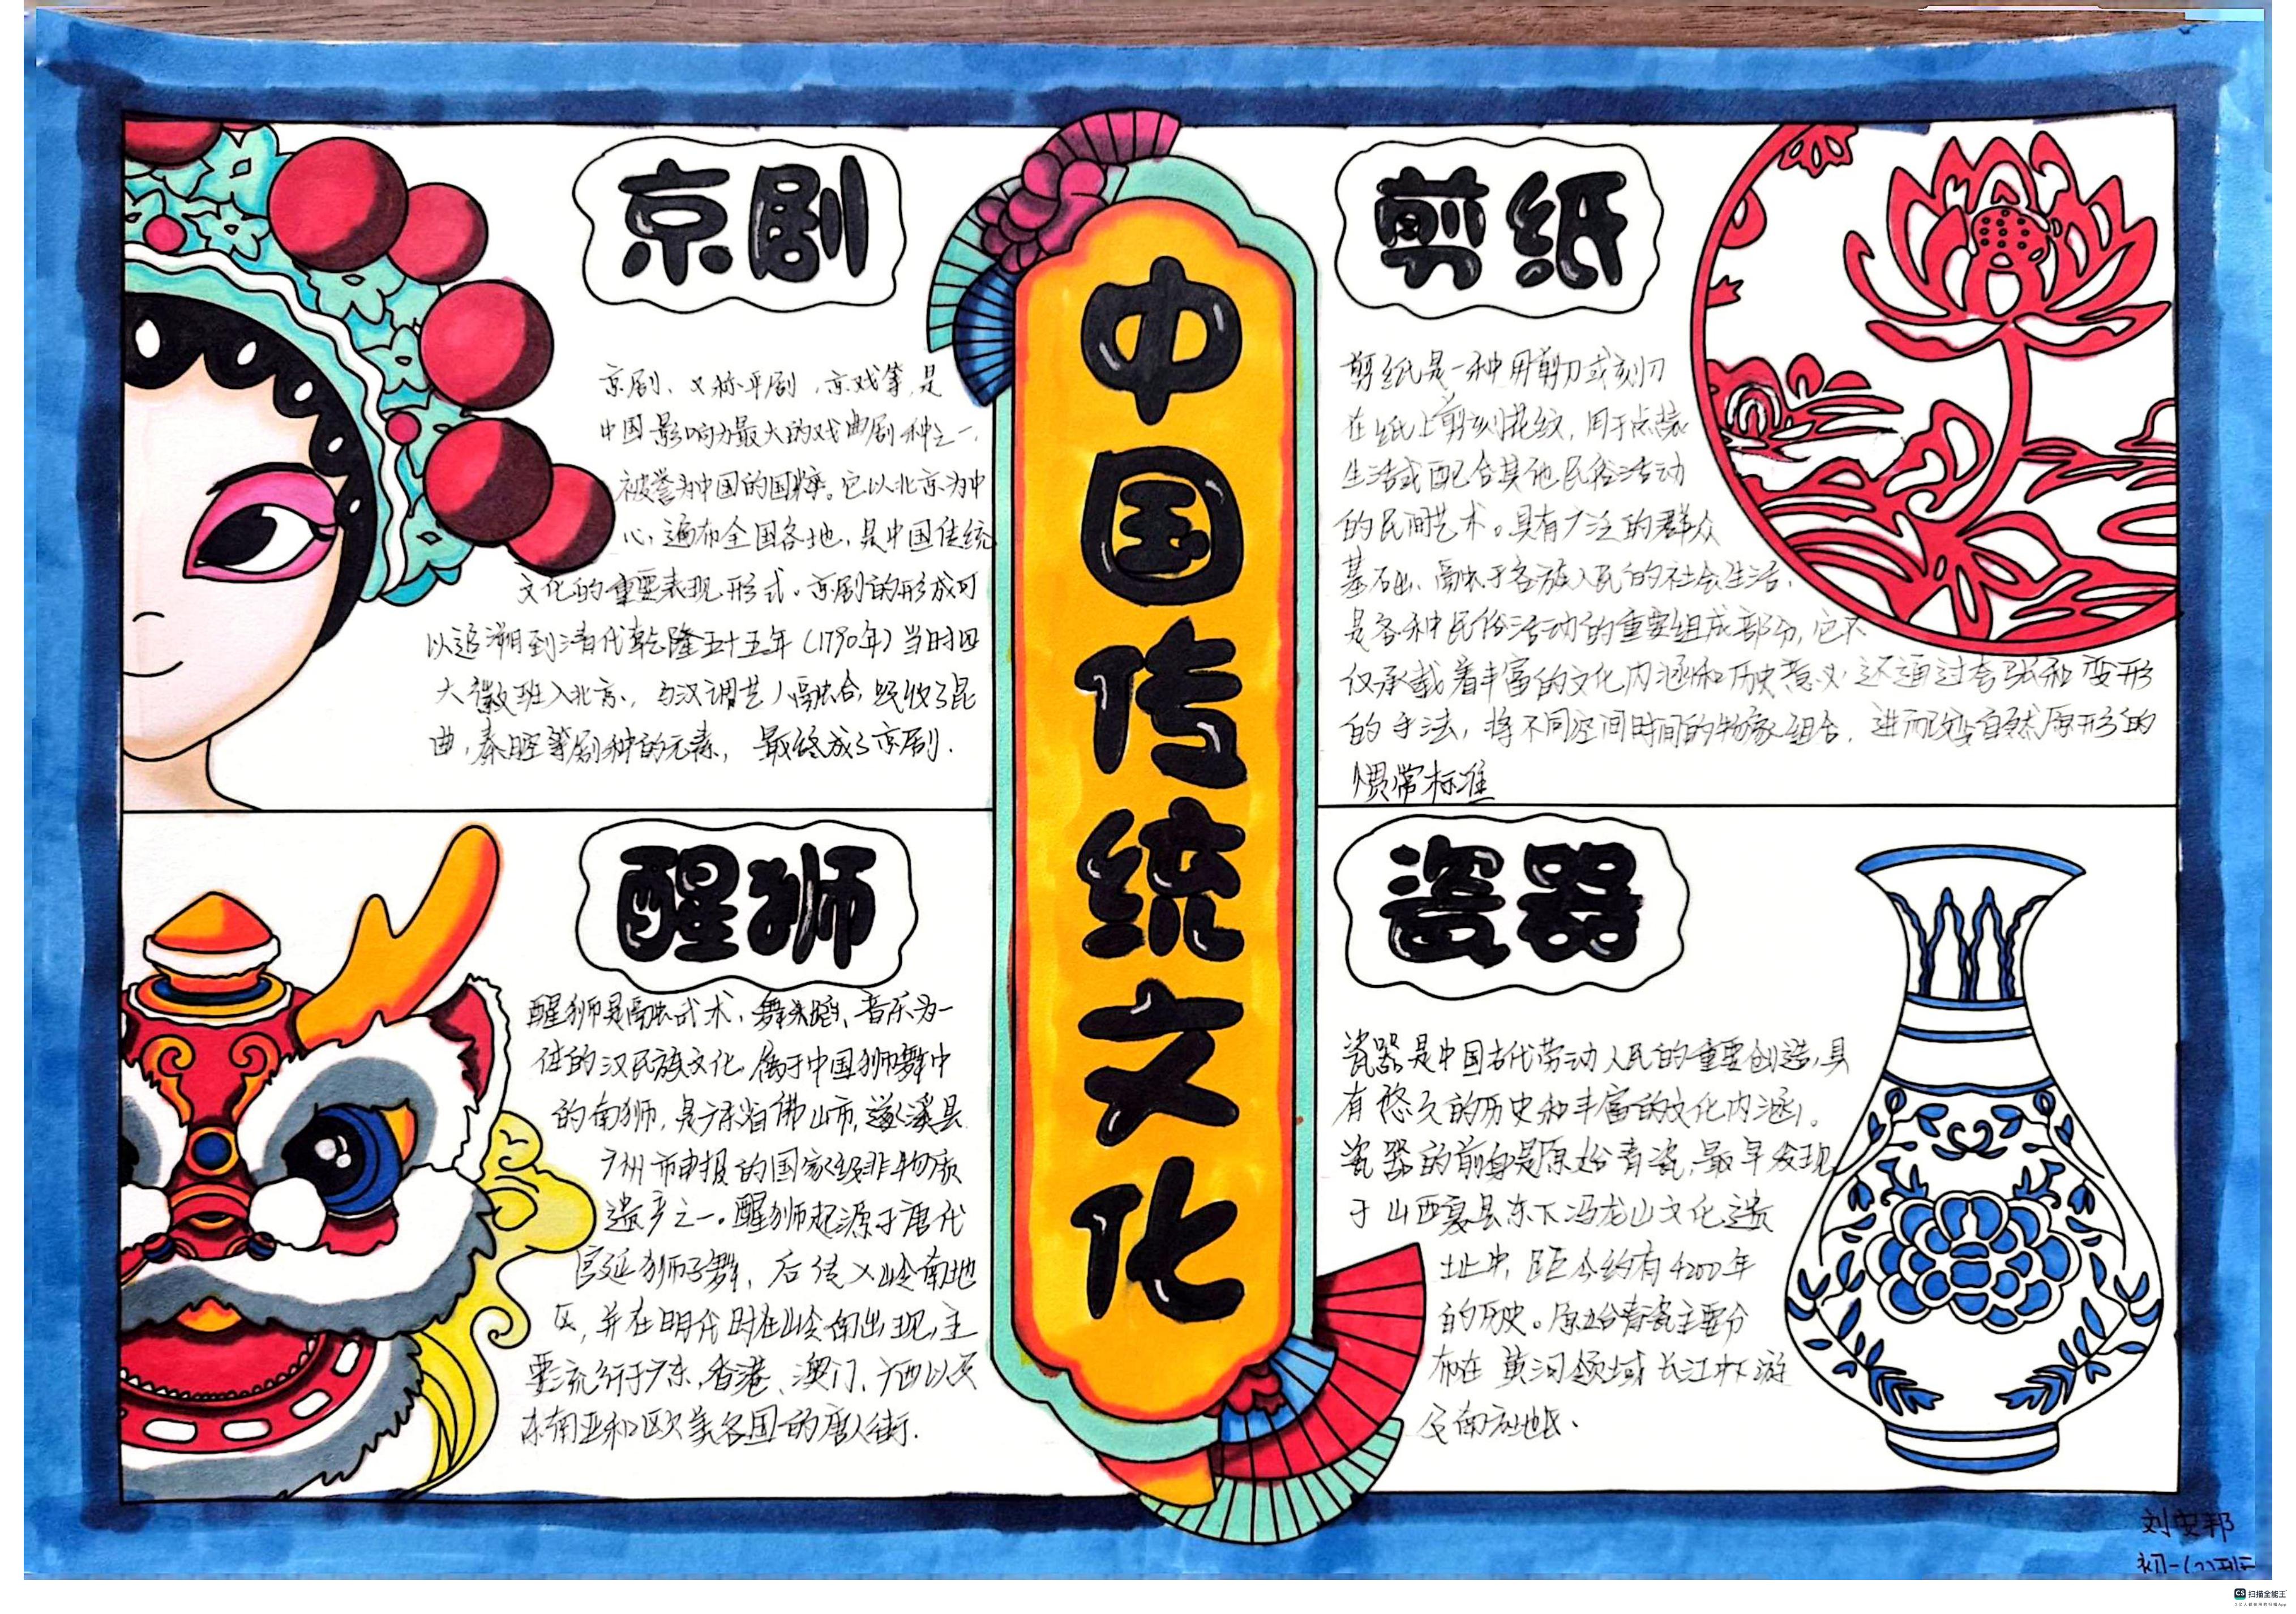 中国传统文化
京剧
京剧、又称平剧，京戏等，是
中国影响力最大的戏曲剧种之一，
被誉为中国的国粹。它以北京为中
心，遍布全国各地，是中国传统
文化的重要表现形式。京剧的形成可
以追溯到清代乾隆五十五年（1790年）当时四
大徽班入北京，与汉调艺人融合，吸收了昆
曲，秦腔等剧种的元素，最终成了京剧.
剪纸
剪纸是一种用剪刀或刻刀
在纸上剪刻花纹，用于点装
生活或配合其他民俗活动
的民间艺术。具有广泛的群众
基础，融于各族人民的社会生活，
是各种民俗活动的重要组成部分，它不
仅承载着丰富的文化内涵和历史意义，还通过夸张和变形
的手法，将不同空间时间的物象组合，进而改变自然原形的
惯常标准
醒狮
醒狮是融武术、舞蹈、音乐为一
体的汉民族文化，属于中国狮舞中
的南狮，是广东省佛山市，遂溪县
广州市申报的国家级非物质
遗产之一。醒狮起源于唐代
宫延狮子舞，后传入岭南地
区，并在明代时在岭南出现，主
要流行于广东，香港、澳门、广西以及
东南亚和欧美各国的唐人街.
瓷器
瓷器是中国古代劳动人民的重要创造，具
有悠久的历史和丰富的文化内涵。
瓷器的前身是原始青瓷，最早发现
于山西夏县东下冯龙山文化遗
址中，距今约有4200年
的历史。原始青瓷主要分
布在黄河领域长江中下游
及南方地区.
刘安邦
初一(2)班
扫描全能王